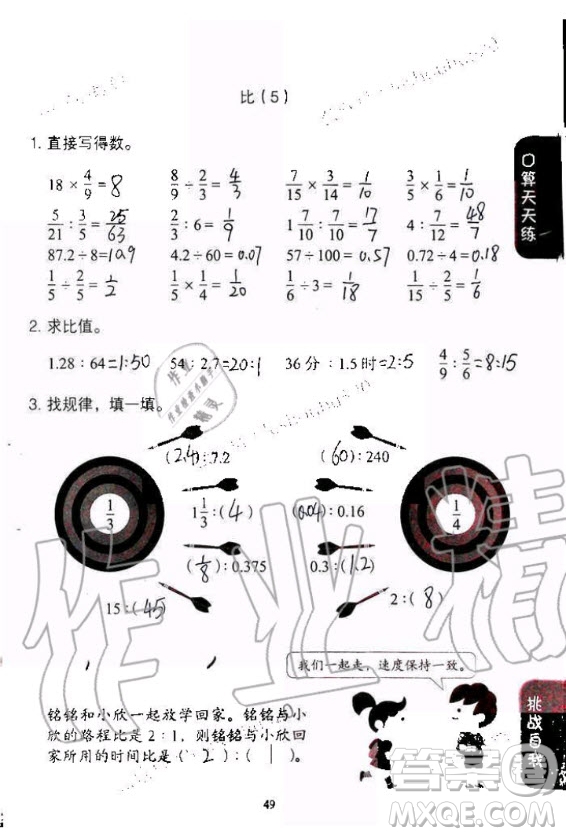 比(5)
1. 直接写得数。
18 × 4/9 = 8    8/9 ÷ 2/3 = 4/3    7/15 × 3/14 = 1/10    3/5 × 1/6 = 1/10
5/21 : 3/5 = 25/63    2/3 : 6 = 1/9    1 7/10 : 7/10 = 17/7    4 : 7/12 = 48/7
87.2÷8=10.9    4.2÷60=0.07    57÷100=0.57    0.72÷4=0.18
1/5 ÷ 2/5 = 1/2    1/5 × 1/4 = 1/20    1/6 ÷ 3 = 1/18    1/15 ÷ 2/5 = 1/6
口算天天练
2. 求比值。
1.28 : 64=1:50    54 : 2.7=20:1    36分 : 1.5时=2:5    4/9 : 5/6 = 8:15
3. 找规律，填一填。
(2.4) : 7.2    (60) : 240
1/3    1 1/3 : (4)    (0.04) : 0.16    1/4
(1/8) : 0.375    0.3 : (1.2)
15 : (45)    2 : (8)
我们一起走，速度保持一致。
铭铭和小欣一起放学回家。铭铭与小
欣的路程比是 2 : 1，则铭铭与小欣回
家所用的时间比是( 2 ) : ( 1 )。
挑战自我
49
作业精灵
答案圈
MXQE.COM